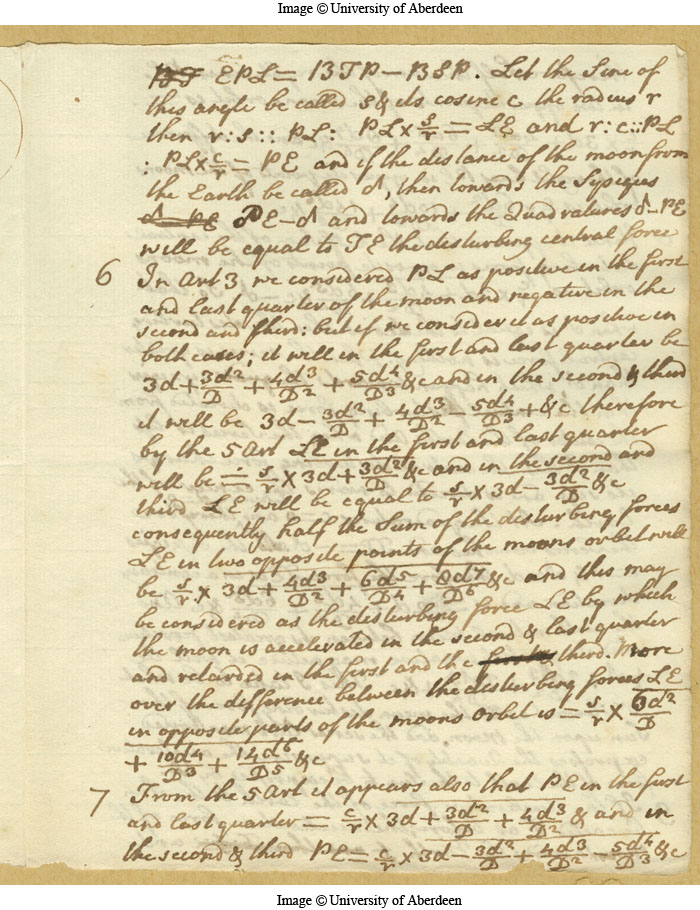 Image © University of Aberdeen
EPL = BTP - BSP. Let the Sine of
this angle be called s & its cosine c the radius r
then r : s :: PL : PL × s/r = LE and r : c :: PL
: PL × c/r = PE and if the distance of the moon from
the Earth be called d, then towards the Syzigies
PE - d and towards the Quadratures d - PE
will be equal to TE the disturbing central force
6 In Art 3 we considered PL as positive in the first
and last quarter of the moon and negative in the
second and third: but if we consider it as positive in
both cases; it will in the first and last quarter be
3d + 3d²/D + 4d³/D² + 5d⁴/D³ &c and in the second & third
it will be 3d - 3d²/D + 4d³/D² - 5d⁴/D³ + &c therefore
by the 5 Art LE in the first and last quarter
will be = s/r × 3d + 3d²/D &c and in the second and
third LE will be equal to s/r × 3d - 3d²/D &c
consequently half the Sum of the disturbing forces
LE in two opposite points of the moons orbit will
be s/r × 3d + 4d³/D² + 6d⁵/D⁴ + 8d⁷/D⁶ &c and this may
be considered as the disturbing force LE by which
the moon is accelerated in the second & last quarter
and retarded in the first and the third. More
over the difference between the disturbing forces LE
in opposite parts of the moons orbit is = s/r × 6d²/D
+ 10d⁴/D³ + 14d⁶/D⁵ &c
7 From the 5 Art it appears also that PE in the first
and last quarter = c/r × 3d + 3d²/D + 4d³/D² & and in
the second & third PE = c/r × 3d - 3d²/D + 4d³/D² - 5d⁴/D³ &c
Image © University of Aberdeen